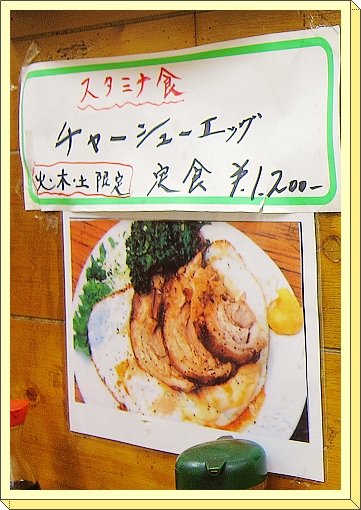 スタミナ食
チャーシューエッグ
火・木・土限定 定食 ¥1,200-